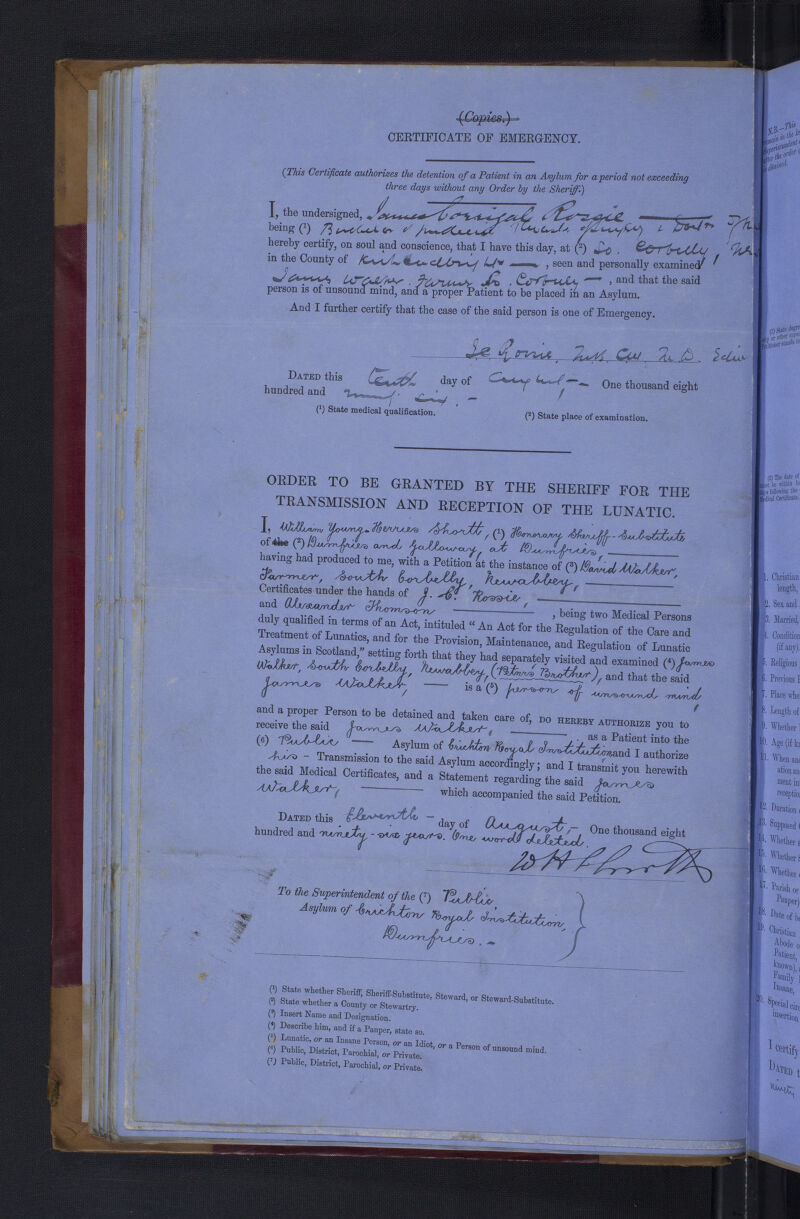 (Copies.)
CERTIFICATE OF EMERGENCY.
(This Certificate authorizes the detention of a Patient in an Asylum for a period not exceeding
three days without any Order by the Sheriff.)
I, the undersigned, James Corrigal Rossie
being (¹) Bachelor of Medicine
hereby certify, on soul and conscience, that I have this day, at (²) So. Corbelly
in the County of Kirkcudbright — , seen and personally examined
James Walker. Farmer So. Corbelly — , and that the said
person is of unsound mind, and a proper Patient to be placed in an Asylum.
And I further certify that the case of the said person is one of Emergency.
Rossie, M.B. C.M. M.D. Edin
DATED this Tenth day of August — One thousand eight
hundred and ninety six. —
(¹) State medical qualification. (²) State place of examination.
ORDER TO BE GRANTED BY THE SHERIFF FOR THE
TRANSMISSION AND RECEPTION OF THE LUNATIC.
I, William Young-Herries Shortt, (¹) Honorary Sheriff-Substitute
of the (²) Dumfries and Galloway, at Dumfries,
having had produced to me, with a Petition at the instance of (³) David Walker,
Farmer, South Corbelly, Newabbey,
Certificates under the hands of J. C. Rossie,
and Alexander Thomson , being two Medical Persons
duly qualified in terms of an Act, intituled “ An Act for the Regulation of the Care and
Treatment of Lunatics, and for the Provision, Maintenance, and Regulation of Lunatic
Asylums in Scotland,” setting forth that they had separately visited and examined (⁴) James
Walker, South Corbelly, Newabbey, (Petnrs Brother), and that the said
James Walker, — is a (⁵) person of unsound mind,
and a proper Person to be detained and taken care of, DO HEREBY AUTHORIZE you to
receive the said James Walker, as a Patient into the
(⁶) Public — Asylum of Crichton Royal Institution and I authorize
his - Transmission to the said Asylum accordingly ; and I transmit you herewith
the said Medical Certificates, and a Statement regarding the said James
Walker, which accompanied the said Petition.
DATED this Eleventh - day of August, - One thousand eight
hundred and ninety-six years. One word deleted.
W H Shortt
To the Superintendent of the (⁷) Public
Asylum of Crichton Royal Institution,
Dumfries. -
(¹) State whether Sheriff, Sheriff-Substitute, Steward, or Steward-Substitute.
(²) State whether a County or Stewartry.
(³) Insert Name and Designation.
(⁴) Describe him, and if a Pauper, state so.
(⁵) Lunatic, or an Insane Person, or an Idiot, or a Person of unsound mind.
(⁶) Public, District, Parochial, or Private.
(⁷) Public, District, Parochial, or Private.
N.B.—This
1. Christian
length,
2. Sex and
3. Married,
4. Condition
(if any)
5. Religious
6. Previous
7. Place whe
8. Length of
9. Whether
10. Age (if k
11. When an
12. Duration
13. Supposed
14. Whether
15. Whether
16. Whether
17. Parish or
Pauper)
18. Date of
19. Christian
Abode
Patient,
known),
Family
Insane,
20. Special cir
insertion
I certify
DATED
ninety